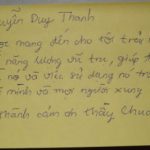 uyễn Duy Thanh
ợc mang đến cho tôi trải n
năng lượng vũ trụ, giúp t
nó và việc sử dụng nó tro
mình và mọi người xung
Thành cảm ơn thầy Chuc